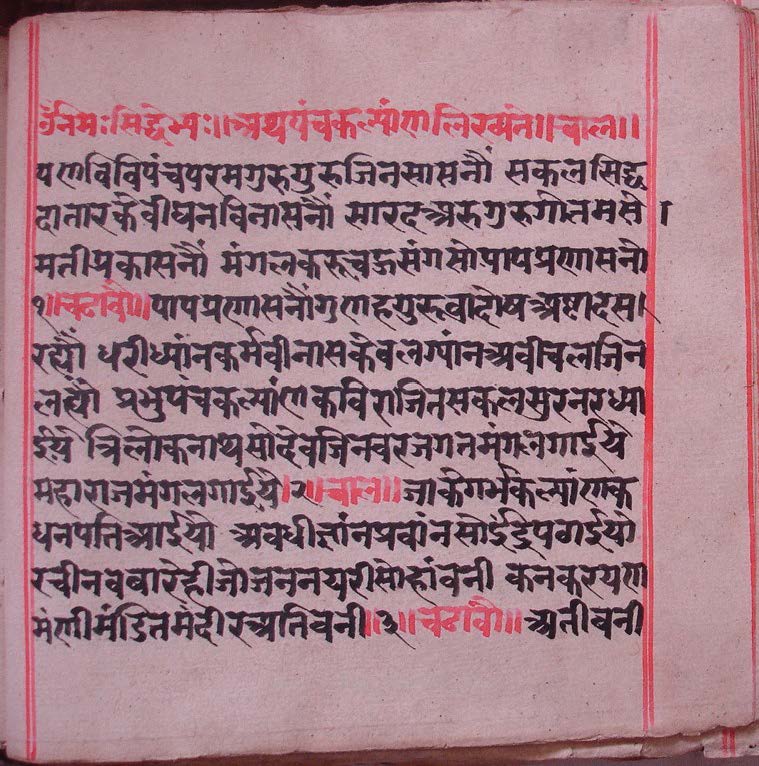 ॐ नमः सिद्धेभ्यः॥ अथ पंचकल्यांणलिख्यते॥ चाल॥
पणविविपंचपरमगुरुगुरुजिनसासनौं सकलसिद्ध
दातारकेवीघनविनासनौं सारदअरुगुरुगौतमसे।
मतीप्रकासनौं मंगलकरूचऊसंगसोपापप्रणासनौ
१॥ चढावौ॥ पापप्रणासनौंगुणहगुरुवादोषअष्टादस।
रह्यौं धरीध्यांनकर्मवीनासकेवलग्यांनअवीचलजिन
लह्यौं प्रभुपंचकल्यांणकविराजितसकलसुरनरध्या
ईये त्रिलोकनाथसोदेवजिनवरजगतमंगलगाईये
महाराजमंगलगाईये। २॥ चाल॥ जाकेगर्भकल्यांणक
धनपतिआईयो अवधीज्ञांनप्रवांनसोईंद्रपठाईयो
रचीनवबारेहीजोजननयरीसोहांवनी कनकरयण
मंणीमंडितमंदीरअतिवनी॥ ३॥ चढावौ॥ अतीवनी